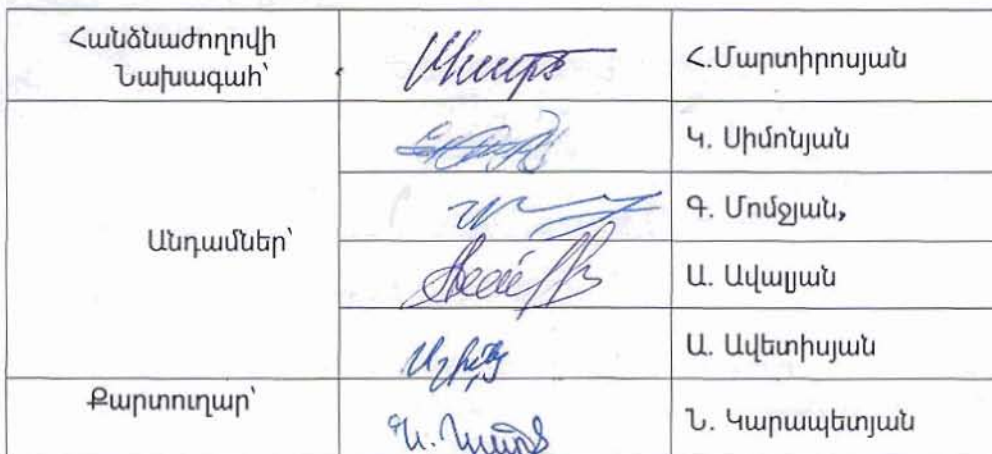 Հանձնաժողովի
Նախագահ՝
Հ.Մարտիրոսյան
Կ. Սիմոնյան
Գ. Մոմջյան,
Անդամներ՝
Ա. Ավալյան
Ա. Ավետիսյան
Քարտուղար՝
Ն. Կարապետյան